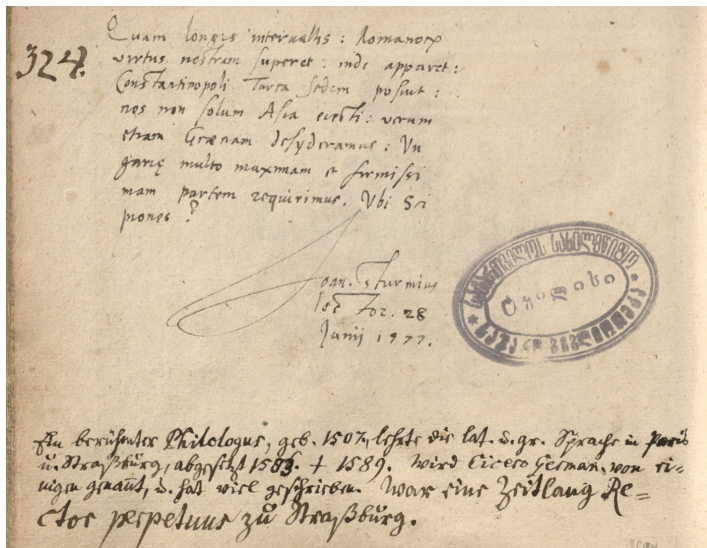 Quam longis intervallis: Romanor
324.
virtus nostram superet: inde apparet:
Constantinopoli Turca sedem posuit:
nos non solum Asia eiecti: verum
etiam Graeciam desyderamus: Vn
garię multo maximam et firmissi
mam partem requirimus. Vbi Sci
piones?
Joan. Sturmius
Junij 1577.
ტფილისი
Ein berühmter Philologus, geb. 1507, lehrte die lat. u. gr. Sprache in Paris
u. Straßburg, abgesetzt 1583. † 1589. Wird Cicero German. von ei=
nigen genannt, u. hat viel geschrieben. War eine Zeitlang Re=
ctor perpetuus zu Straßburg.